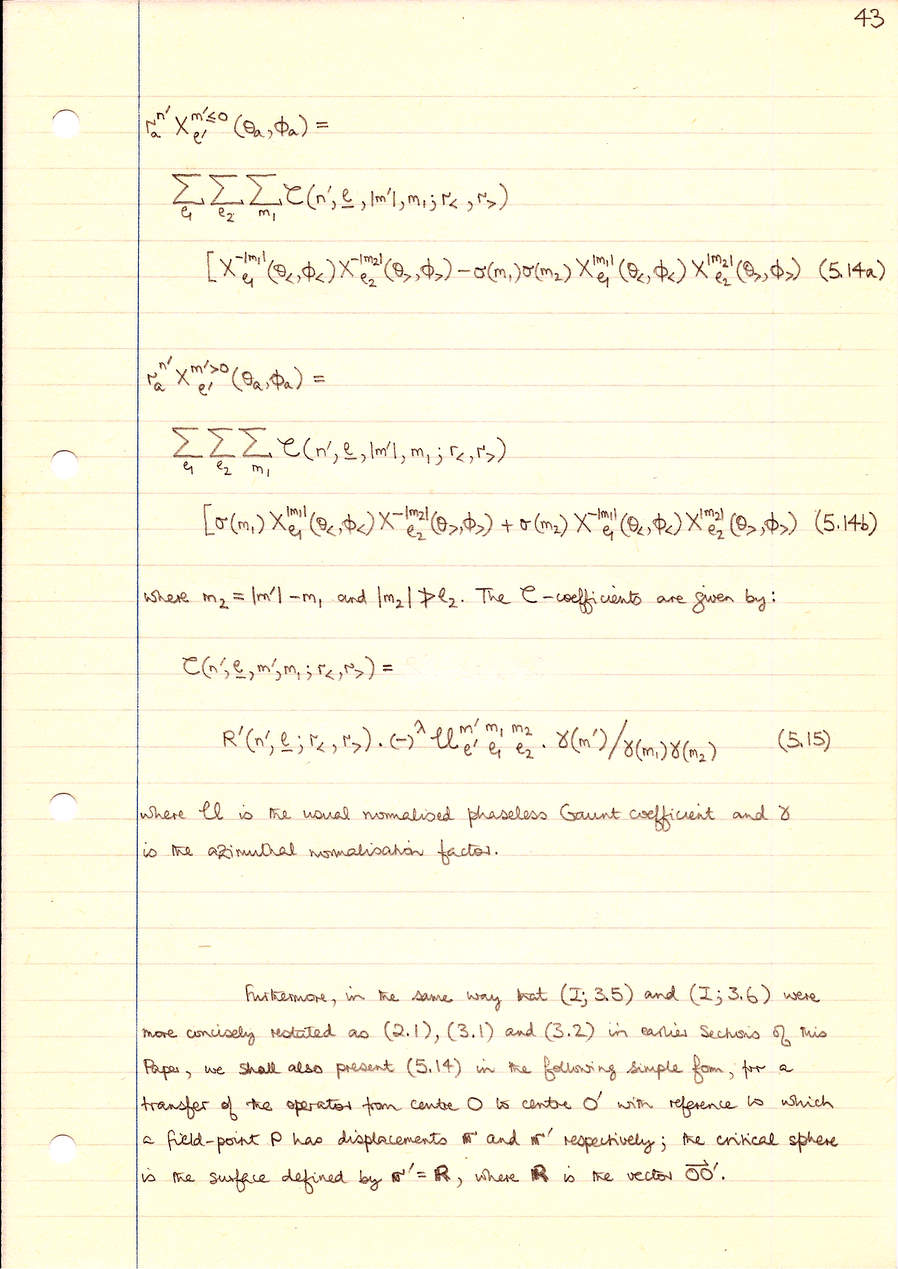 43
r_a^{n'} X_{ℓ'}^{m'≤0} (θ_a, ϕ_a) =
∑_{ℓ_1} ∑_{ℓ_2} ∑_{m_1} 𝒞(n', ℓ, |m'|, m_1; r_<, r_>)
[X_{ℓ_1}^{-|m_1|}(θ_<, ϕ_<) X_{ℓ_2}^{-|m_2|}(θ_>, ϕ_>) − σ(m_1)σ(m_2) X_{ℓ_1}^{|m_1|}(θ_<, ϕ_<) X_{ℓ_2}^{|m_2|}(θ_>, ϕ_>) (5.14a)
r_a^{n'} X_{ℓ'}^{m'>0} (θ_a, ϕ_a) =
∑_{ℓ_1} ∑_{ℓ_2} ∑_{m_1} 𝒞(n', ℓ, |m'|, m_1; r_<, r_>)
[σ(m_1) X_{ℓ_1}^{|m_1|}(θ_<, ϕ_<) X_{ℓ_2}^{-|m_2|}(θ_>, ϕ_>) + σ(m_2) X_{ℓ_1}^{-|m_1|}(θ_<, ϕ_<) X_{ℓ_2}^{|m_2|}(θ_>, ϕ_>) (5.14b)
where m_2 = |m'| − m_1 and |m_2| ≯ ℓ_2. The 𝒞-coefficients are given by:
𝒞(n', ℓ, m', m_1; r_<, r_>) =
R'(n', ℓ; r_<, r_>) . (−)^λ 𝒰_{ℓ' ℓ_1 ℓ_2}^{m' m_1 m_2} . γ(m')/γ(m_1)γ(m_2) (5.15)
where 𝒰 is the usual normalised phaseless Gaunt coefficient and γ
is the azimuthal normalisation factor.
Furthermore, in the same way that (I; 3.5) and (I; 3.6) were
more concisely restated as (2.1), (3.1) and (3.2) in earlier Sections of this
Paper, we shall also present (5.14) in the following simple form, for a
transfer of the operator from centre O to centre O' with reference to which
a field-point P has displacements 𝐫 and 𝐫' respectively; the critical sphere
is the surface defined by 𝐫' = 𝐑, where 𝐑 is the vector O⃗O'.